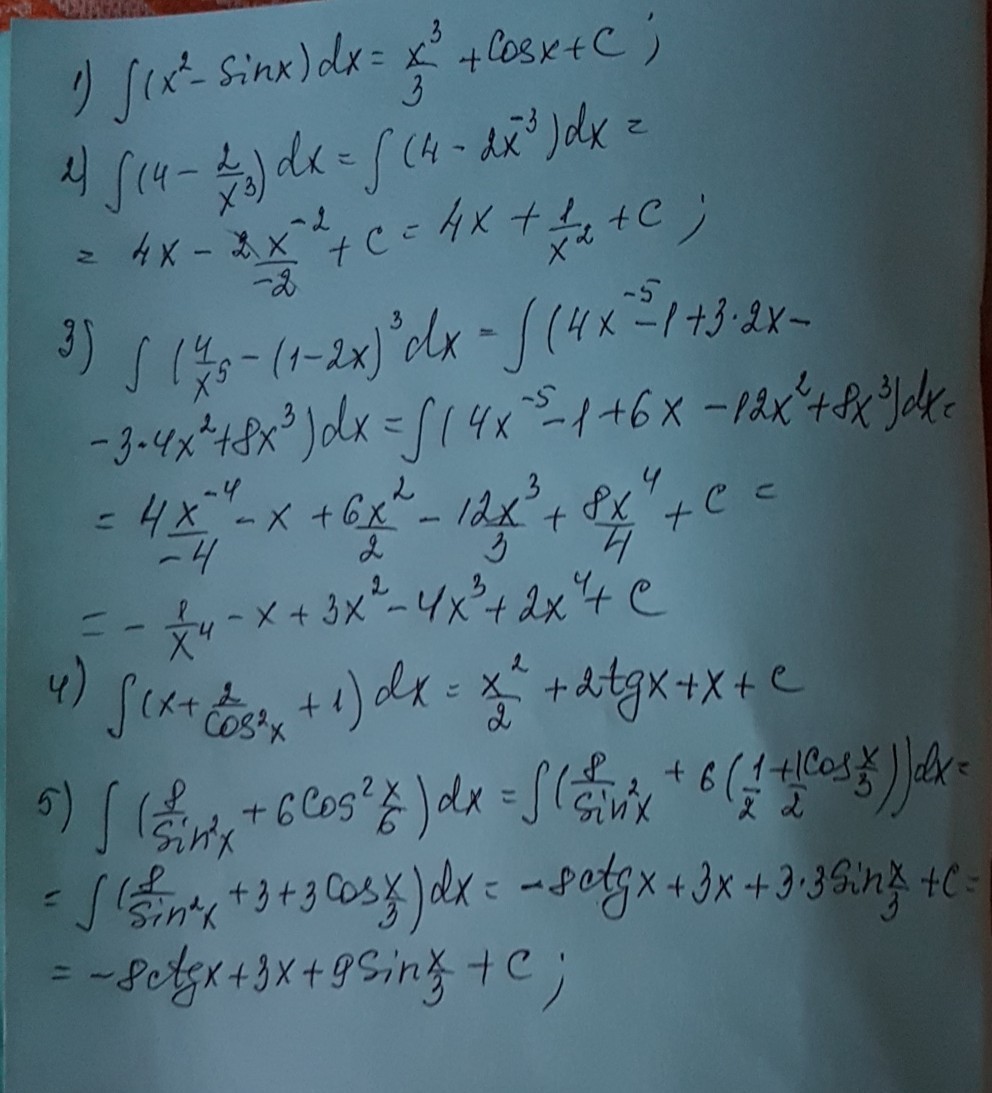 1) ∫(x² - sinx)dx = x³/3 + cosx + C ;
2) ∫(4 - 2/x³)dx = ∫(4 - 2x⁻³)dx =
= 4x - 2x⁻²/-2 + C = 4x + 1/x² + C ;
3) ∫(4/x⁵ - (1-2x)³dx = ∫(4x⁻⁵ - 1 + 3·2x -
- 3·4x² + 8x³)dx = ∫(4x⁻⁵ - 1 + 6x - 12x² + 8x³)dx =
= 4x⁻⁴/-4 - x + 6x²/2 - 12x³/3 + 8x⁴/4 + C =
= - 1/x⁴ - x + 3x² - 4x³ + 2x⁴ + C
4) ∫(x + 2/cos²x + 1)dx = x²/2 + 2tgx + x + C
5) ∫(8/sin²x + 6cos² x/6)dx = ∫(8/sin²x + 6(1/2 + 1/2 cos x/3))dx =
= ∫(8/sin²x + 3 + 3cos x/3)dx = -8ctgx + 3x + 3·3sin x/3 + C =
= -8ctgx + 3x + 9sin x/3 + C ;